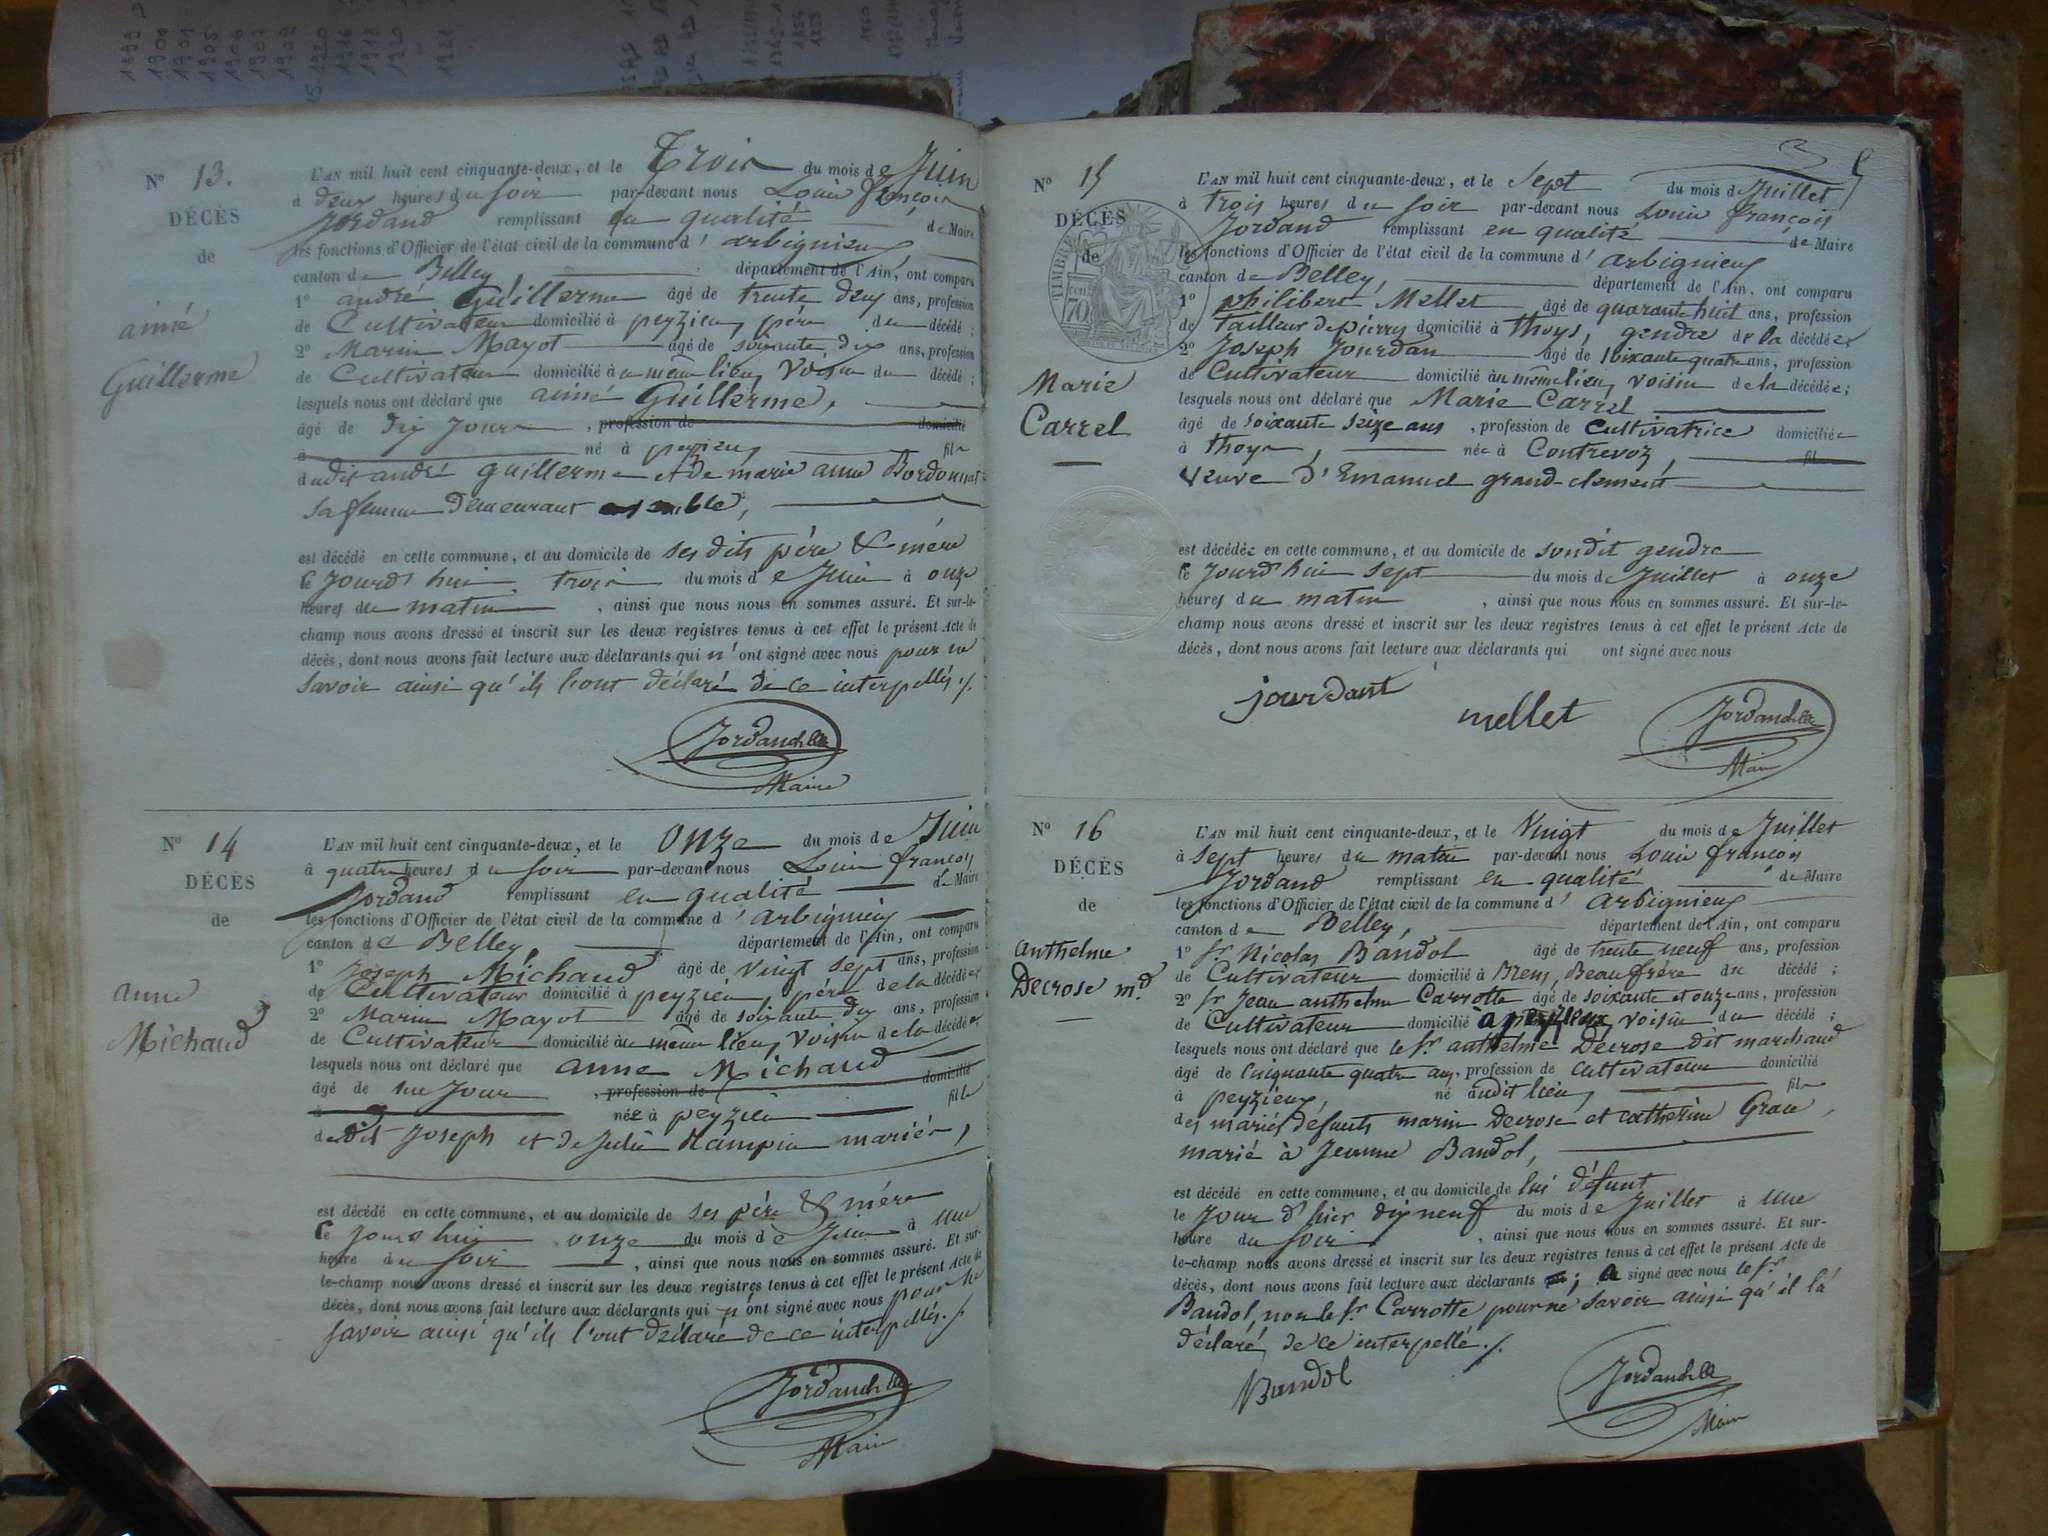 N° 13.
DÉCÈS
de
aimé
Guillerme
L'AN mil huit cent cinquante-deux, et le Trois du mois de Juin
à deux heures du soir par-devant nous Louis françois
Jordand remplissant en qualité de Maire
les fonctions d'Officier de l'état civil de la commune d'arbignieu
canton de Belley département de l'Ain, ont comparu
1° andré Guillerme âgé de trente deux ans, profession
de Cultivateur domicilié à peyzieu, père du décédé;
2° Marin Mayot âgé de soixante dix ans, profession
de Cultivateur domicilié au même lieu, voisin du décédé;
lesquels nous ont déclaré que aimé Guillerme,
âgé de dix jours, profession de domicilié
à né à peyzieu, fils
dudit andré guillerme et de marie anne Bordonnat
sa femme demeurant ensemble,
est décédé en cette commune, et au domicile de ses dits père & mère
ce jourd'hui trois du mois de Juin à onze
heures du matin, ainsi que nous nous en sommes assuré. Et sur-le-
champ nous avons dressé et inscrit sur les deux registres tenus à cet effet le présent Acte de
décès, dont nous avons fait lecture aux déclarants qui n'ont signé avec nous pour ne
savoir ainsi qu'ils l'ont déclaré de ce interpellés ./.
Jordand
Maire
N° 14
DÉCÈS
de
anne
Michaud
L'AN mil huit cent cinquante-deux, et le onze du mois de Juin
à quatre heures du soir par-devant nous Louis françois
Jordand remplissant en qualité de Maire
les fonctions d'Officier de l'état civil de la commune d'arbignieu
canton de Belley, département de l'Ain, ont comparu
1° Joseph Michaud âgé de vingt sept ans, profession
de Cultivateur domicilié à peyzieu, père de la décédée;
2° Marin Mayot âgé de soixante dix ans, profession
de Cultivateur domicilié au même lieu, voisin de la décédée;
lesquels nous ont déclaré que anne Michaud
âgé de un jour, profession de domicilié
à née à peyzieu fille
dudit Joseph et de Julie Rampin mariés,
est décédé en cette commune, et au domicile de ses père & mère
ce jourd'hui onze du mois de Juin à une
heure du soir, ainsi que nous nous en sommes assuré. Et sur-
le-champ nous avons dressé et inscrit sur les deux registres tenus à cet effet le présent Acte de
décès, dont nous avons fait lecture aux déclarants qui n'ont signé avec nous pour ne
savoir ainsi qu'ils l'ont déclaré de ce interpellés ./.
Jordand
Maire
N° 15
DÉCÈS
de
TIMBRE
70
Marie
Carrel
L'AN mil huit cent cinquante-deux, et le sept du mois de Juillet
à trois heures du soir par-devant nous Louis françois
Jordand remplissant en qualité de Maire
les fonctions d'Officier de l'état civil de la commune d'arbignieu
canton de Belley, département de l'Ain, ont comparu
1° philibert Mellet âgé de quarante huit ans, profession
de tailleur de pierres domicilié à thoys, gendre de la décédée;
2° Joseph Jourdan âgé de soixante quatre ans, profession
de Cultivateur domicilié au même lieu, voisin de la décédée;
lesquels nous ont déclaré que Marie Carrel
âgé de soixante seize ans, profession de Cultivatrice domiciliée
à thoys, née à Contrevoz, fil
veuve d'Emanuel grand-clement
est décédée en cette commune, et au domicile de sondit gendre
le jourd'hui sept du mois de Juillet à onze
heures du matin, ainsi que nous nous en sommes assuré. Et sur-le-
champ nous avons dressé et inscrit sur les deux registres tenus à cet effet le présent Acte de
décès, dont nous avons fait lecture aux déclarants qui ont signé avec nous
jourdant mellet Jordand
Maire
N° 16
DÉCÈS
de
anthelme
Decrose md
L'AN mil huit cent cinquante-deux, et le Vingt du mois de Juillet
à sept heures du matin par-devant nous Louis françois
Jordand remplissant en qualité de Maire
les fonctions d'Officier de l'état civil de la commune d'arbignieu
canton de Belley, département de l'Ain, ont comparu
1° Sr Nicolas Bandol âgé de trente neuf ans, profession
de Cultivateur domicilié à Brens, Beaufrère du décédé;
2° Sr Jean anthelme Carrotte âgé de soixante et onze ans, profession
de Cultivateur domicilié à peyzieu, voisin du décédé;
lesquels nous ont déclaré que le Sr anthelme Decrose dit marchand
âgé de cinquante quatre ans, profession de cultivateur domicilié
à peyzieu, né audit lieu, fils
des mariés défunts marin Decrose et catherine Grau,
marié à Jeanne Bandol,
est décédé en cette commune, et au domicile de lui défunt
le jour d'hier dix neuf du mois de Juillet à une
heure du soir, ainsi que nous nous en sommes assuré. Et sur-
le-champ nous avons dressé et inscrit sur les deux registres tenus à cet effet le présent Acte de
décès, dont nous avons fait lecture aux déclarants; a signé avec nous le Sr
Bandol, non le Sr Carrotte pour ne savoir ainsi qu'il l'a
déclaré de ce interpellé ./.
Bandol Jordand
Maire